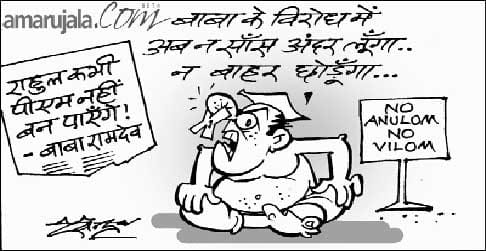 amarujala.com
BETA
बाबा के विरोध में
अब न साँस अंदर लूँगा..
न बाहर छोडूँगा...
राहुल कभी
पीएम नहीं
बन पाएँगे!
- बाबा रामदेव
NO
ANULOM
NO
VILOM